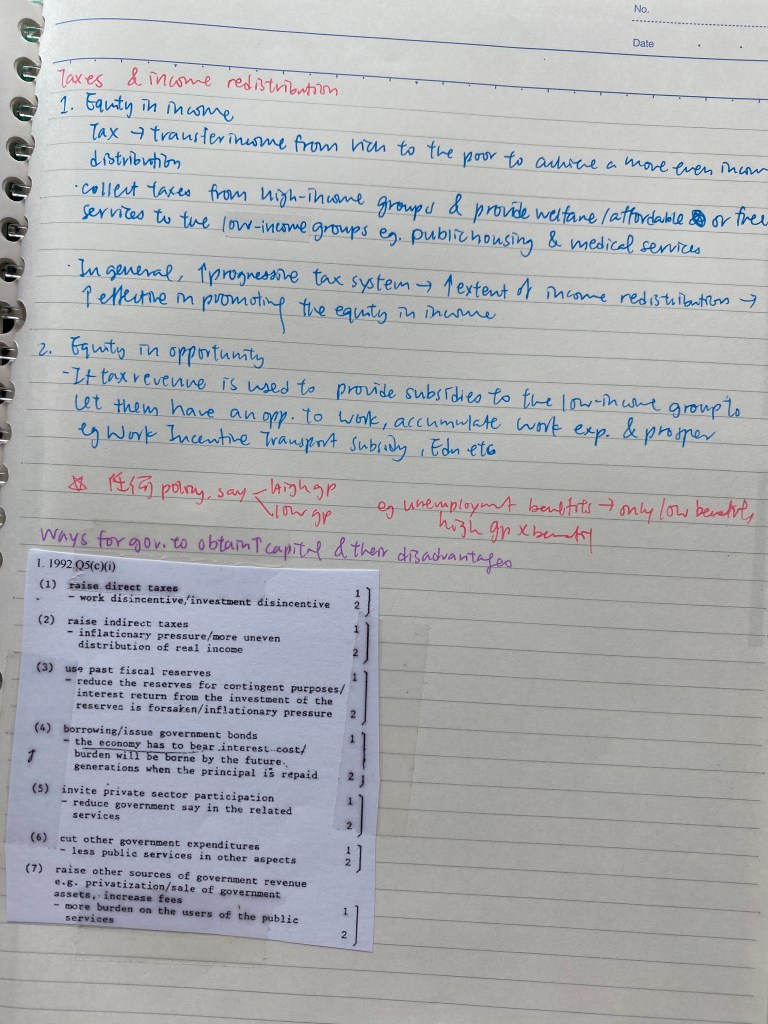 No.
Date
Taxes & income redistribution
1. Equity in income
Tax → transfer income from rich to the poor to achieve a more even incom
distribution
· collect taxes from high-income groups & provide welfare / affordable or free
services to the low-income groups eg. public housing & medical services
· In general, ↑progressive tax system → ↑extent of income redistribution →
↑effective in promoting the equity in income
2. Equity in opportunity
- If tax revenue is used to provide subsidies to the low-income group to
let them have an opp. to work, accumulate work exp. & prosper
eg Work Incentive Transport Subsidy, Edu etc
任何 policy, say high gp
low gp
eg unemployment benefits → only low benefits,
high gp x benefit
Ways for gov. to obtain ↑capital & their disadvantages
1. 1992 Q5(c)(i)
(1) raise direct taxes 1
- work disincentive/investment disincentive 2
(2) raise indirect taxes 1
- inflationary pressure/more uneven
distribution of real income 2
(3) use past fiscal reserves 1
- reduce the reserves for contingent purposes/
interest return from the investment of the
reserves is forsaken/inflationary pressure 2
(4) borrowing/issue government bonds 1
- the economy has to bear interest cost/
burden will be borne by the future
generations when the principal is repaid 2
(5) invite private sector participation 1
- reduce government say in the related
services 2
(6) cut other government expenditures 1
- less public services in other aspects 2
(7) raise other sources of government revenue
e.g. privatization/sale of government
assets, increase fees 1
- more burden on the users of the public
services 2